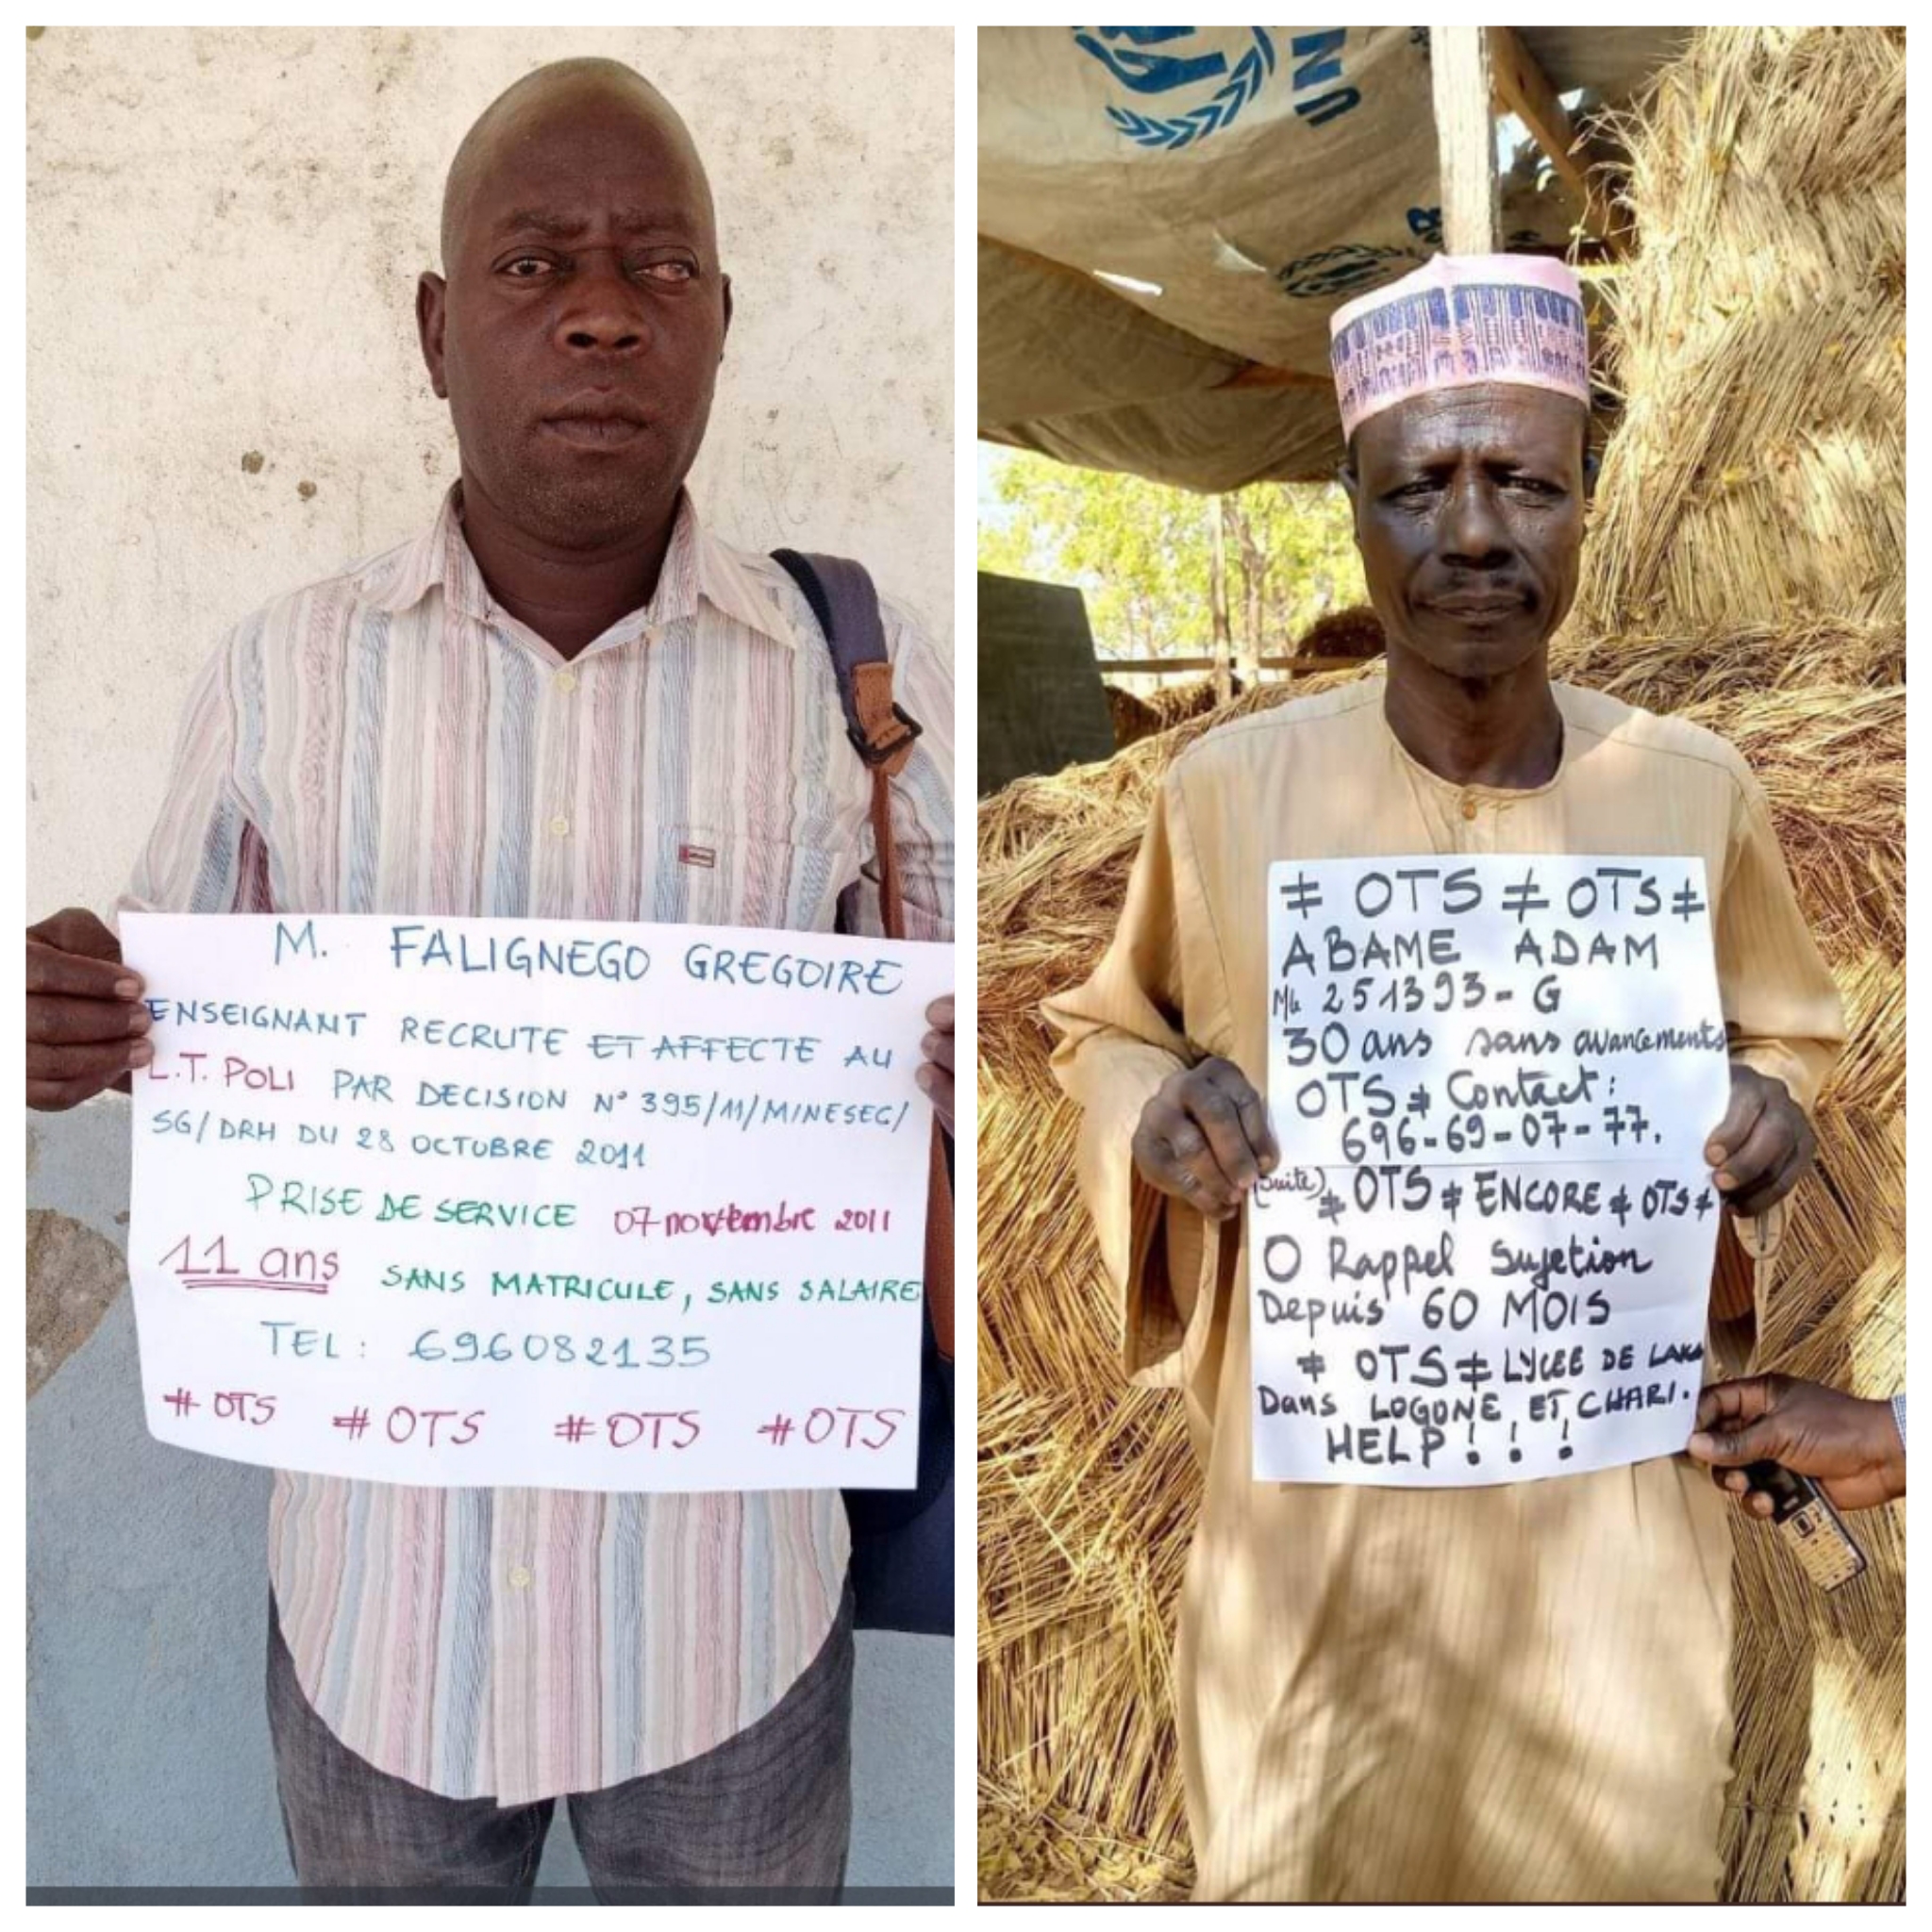 M. FALIGNEGO GREGOIRE
ENSEIGNANT RECRUTE ET AFFECTE AU
L.T. POLI PAR DECISION N° 395/11/MINESEC/
SG/DRH DU 28 OCTOBRE 2011
PRISE DE SERVICE 07 novembre 2011
11 ans SANS MATRICULE, SANS SALAIRE
TEL: 696082135
# OTS # OTS # OTS # OTS
UN
≠ OTS ≠ OTS ≠
ABAME ADAM
Mle 251393-G
30 ans sans avancements
OTS ≠ Contact:
696-69-07-77.
(Suite) ≠ OTS ≠ ENCORE ≠ OTS ≠
0 Rappel Sujetion
Depuis 60 MOIS
≠ OTS ≠ LYCEE DE LAKA
Dans LOGONE ET CHARI.
HELP!!!